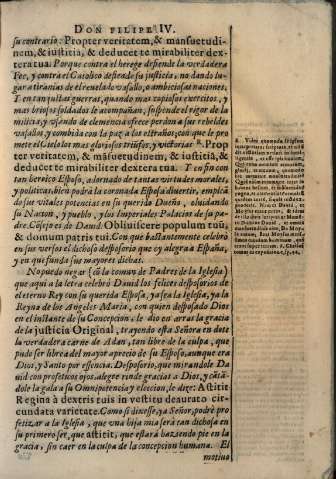 DON FILIPE IV.
su contrario: Propter veritatem, & mansuetudi-
nem, & iustitia, & deducet te mirabiliter dex-
tera tua. Porque contra el herege defiende la verdadera
Fee, y contra el Catolico defiende su justicia, no dando lu-
gar a tiranias de el reuelado vasallo, o ambiciosas naciones.
Y en tan justas guerras, quando mas copiosos exercitos, y
mas briosos soldados le acompañan, suspende el rigor de la
milicia, y vsando de clemencia ofrece perdon a sus rebeldes
vasallos, y combida con la paz a los estraños; con que le pro-
mete el Cielo los mas gloriosos triũfos, y victorias Prop
ter veritatem, & mãsuetudinem, & iustitia, &
deducet te mirabiliter dextera tua. Y en fin con
tan heroico Esposo, adornado de tantas virtudes morales,
y politicas, bien podrá la coronada Esposa diuertir, emplea
do sus vitales potencias en su querido Dueño, oluidando
su Nacion, y pueblo, y los Imperiales Palacios de su pa-
dre. Cõsejo es de Dauid. Obliuiscere populum tuũ,
& domum patris tui. Con que bastantemente celebrò
en sus versos el dichoso desposorio que oy alegra a España,
y en que funda sus mayores dichas.
No puedo negar (cõ la comun de Padres de la Iglesia)
que aqui a la letra celebrò Dauid los felices desposorios de
el eterno Rey con su querida Esposa, ya sea la Iglesia, ya la
Reyna de los Angeles Maria, con quien desposado Dios
en el instante de su Concepcion, le dio en arras la gracia
de la justicia Original, trayendo esta Señora en dote
la verdadera carne de Adan, tan libre de la culpa, que
pudo ser librea del mayor aprecio de su Esposo, aunque era
Dios, y Santo por essencia. Desposorio, que mirandole Da
uid con profeticos ojos, alegre rinde gracias a Dios, y cãtã-
dole la gala a su Omnipotencia y eleccion, le dize: Astitit
Regina à dextris tuis in vestitu deaurato cir-
cundata varietate. Como si dixesse, ya Señor, podrè pro
fetizar a la Iglesia, que vna hija mia serà tan dichosa en
su primero ser, que astitit, que estarà haziendo pie en la
gracia, sin caer en la culpa de la concepcion humana. El
motiuo